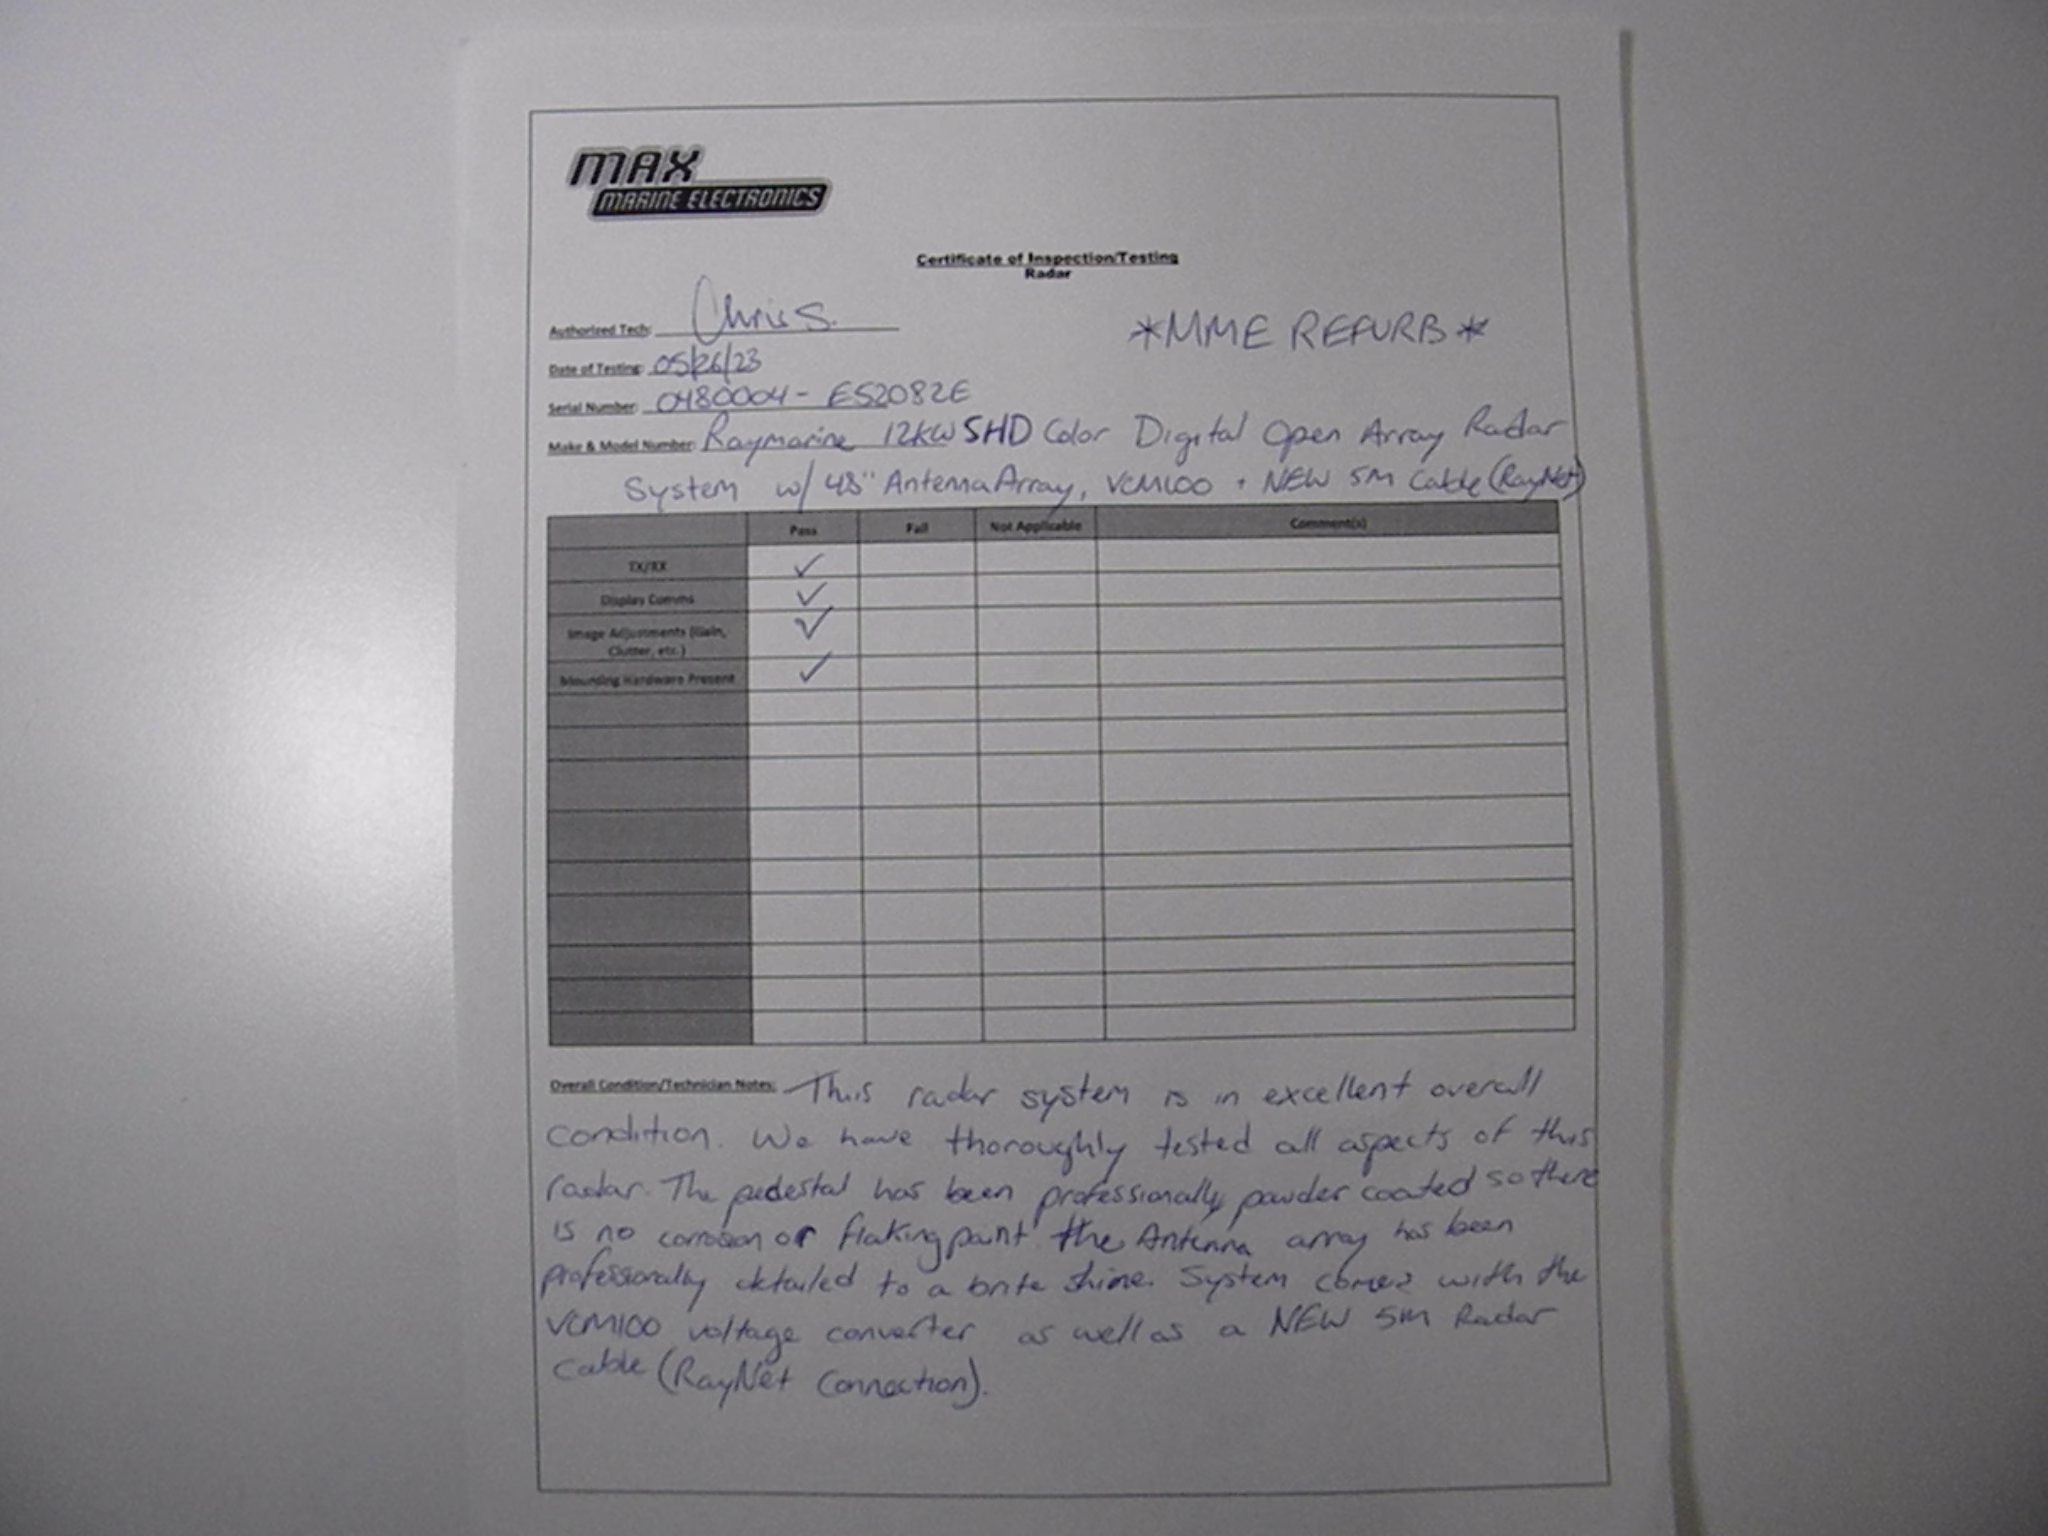 MAX
MARINE ELECTRONICS
Certificate of Inspection/Testing
Radar
Authorized Tech: Chris S.
*MME REFURB*
Date of Testing: 05/26/23
Serial Number: 0480004- E52082E
Make & Model Number: Raymarine 12kW SHD Color Digital Open Array Radar
System w/ 48" Antenna Array, VCM100 + NEW 5M Cable (RayNet)
Pass Fail Not Applicable Comment(s)
TX/RX ✓
Display Comms ✓
Image Adjustments (Gain, ✓
Clutter, etc.)
Mounting Hardware Present ✓
Overall Condition/Technician Notes: This radar system is in excellent overall
condition. We have thoroughly tested all aspects of this
radar. The pedestal has been professionally powder coated so there
is no corrosion or flaking paint. The Antenna array has been
professionally detailed to a brite shine. System comes with the
VCM100 voltage converter as well as a NEW 5M Radar
Cable (RayNet Connection).